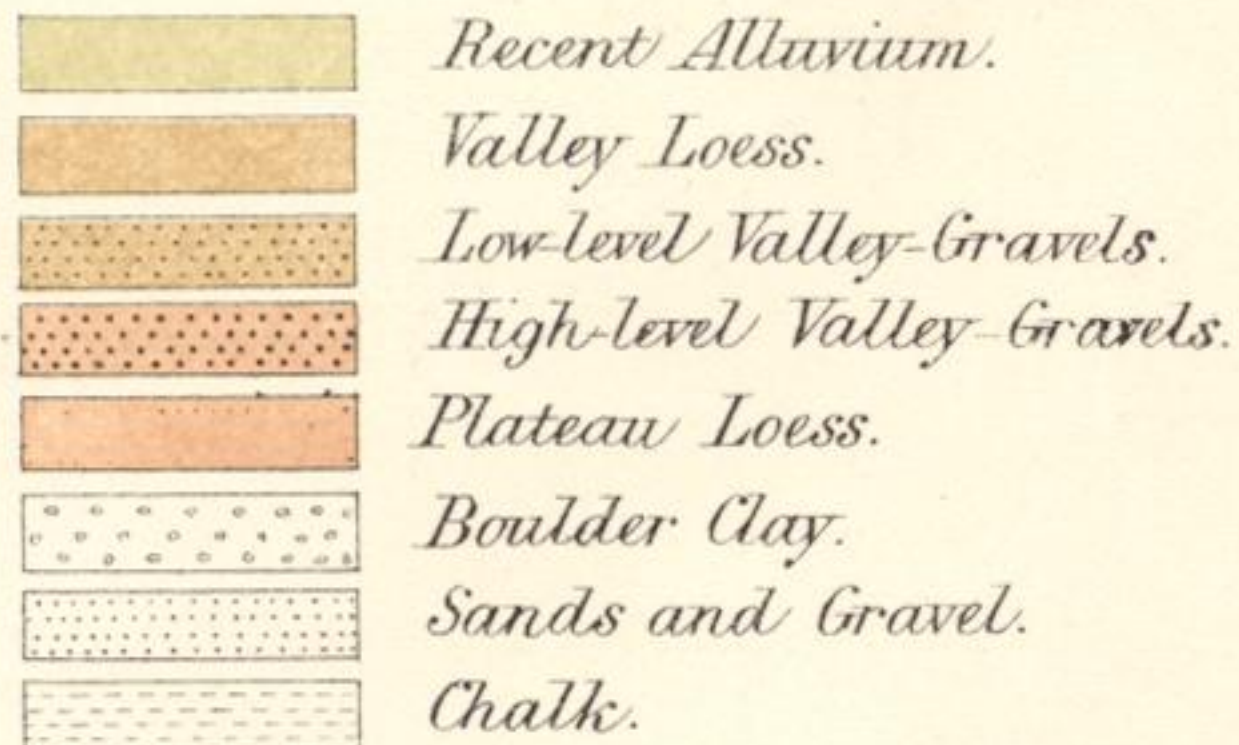 Recent Alluvium.
Valley Loess.
Low-level Valley-Gravels.
High-level Valley-Gravels.
Plateau Loess.
Boulder Clay.
Sands and Gravel.
Chalk.